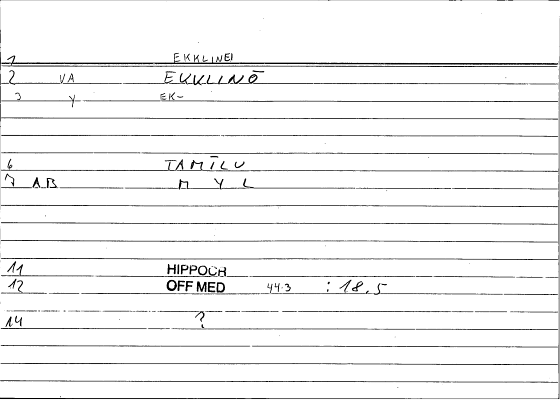 1 EKKLINEI
2 VA EKKLINŌ
3 Y EK-
6 TAMĪLU
7 AB M Y L
11 HIPPOCR
12 OFF MED 44.3 : 18.5
14 ?